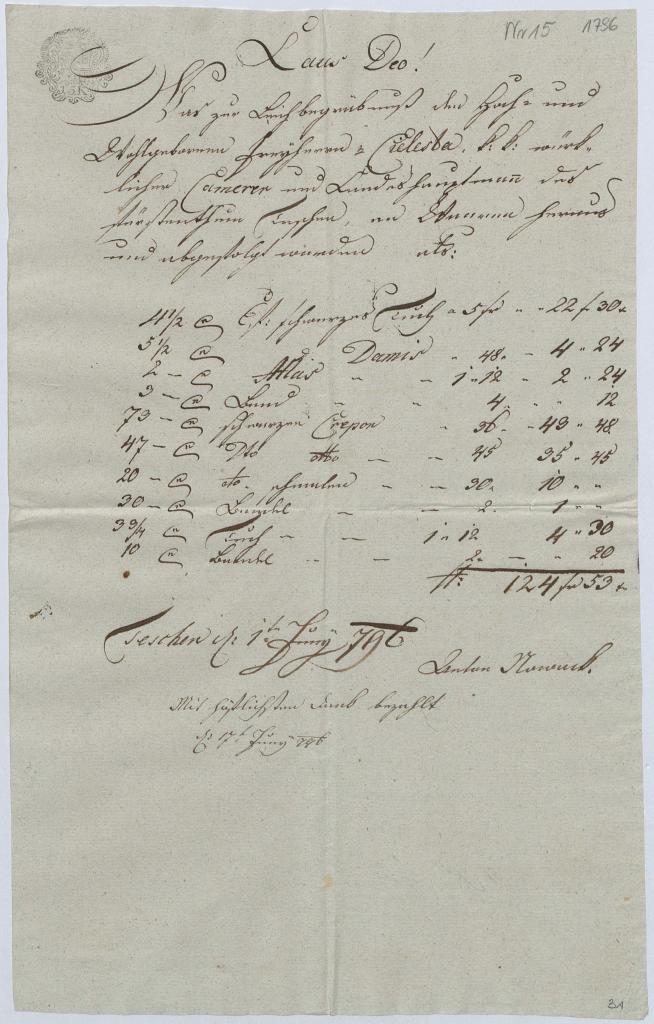 Nr 15 1796
Laus Deo!
Was zur Leichbegräbnuß des Hoch- und
Wohlgebornen Freyherrn v Cselesta, k: k: würk-
licher Camerer und Landeshauptmann des
Fürstenthum Teschen, an Waaren heraus
und abgefolgt worden als:
4 1/2 E schwarzes Tuch a 5 fr " " 22 f 30 x
5 1/2 E Damis " 48 " 4 " 24
2 — E Atlas " — 1 " 12 " 2 " 24
3 — E Band — " 4 " " 12
73 — E schwarzen Crepon " 36 " 43 " 48
47 — E Dto dtto — — 45 35 " 45
20 — E dto schmalen " — 30 " 10 " "
30 — E Bändel — — 2 " 1 " "
3 3/4 E Tuch — — 1 " 12 4 " 30
10 E Bändel — — 2 " — " 20
124 fr 53 x
Teschen d: 1ten Juny 796
Anton Nowack.
Mit höflichsten Dank bezahlt
d: 17t Juny 796
31